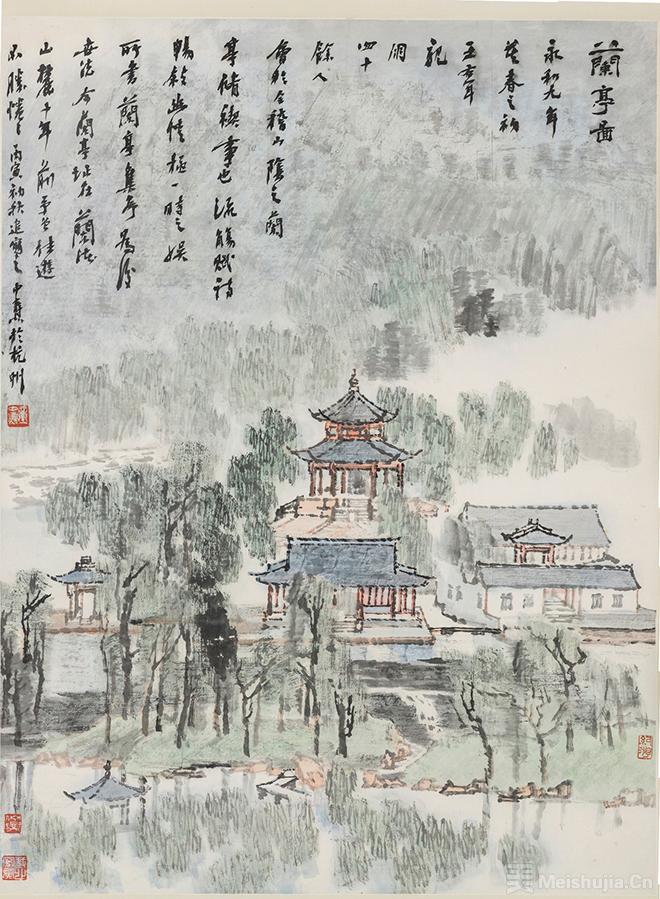 蘭亭圖
永和九年
暮春之初
王右軍
親
朋
四十
餘人
會於会稽山陰之蘭
亭脩禊事也流觴賦詩
暢敘幽情極一時之娛
所書蘭亭集序為後
世法今蘭亭址在蘭渚
山麓千年前事曾往遊
不勝惓惓丙寅初秋追寫之中燾於杭州
Meishujia.Cn